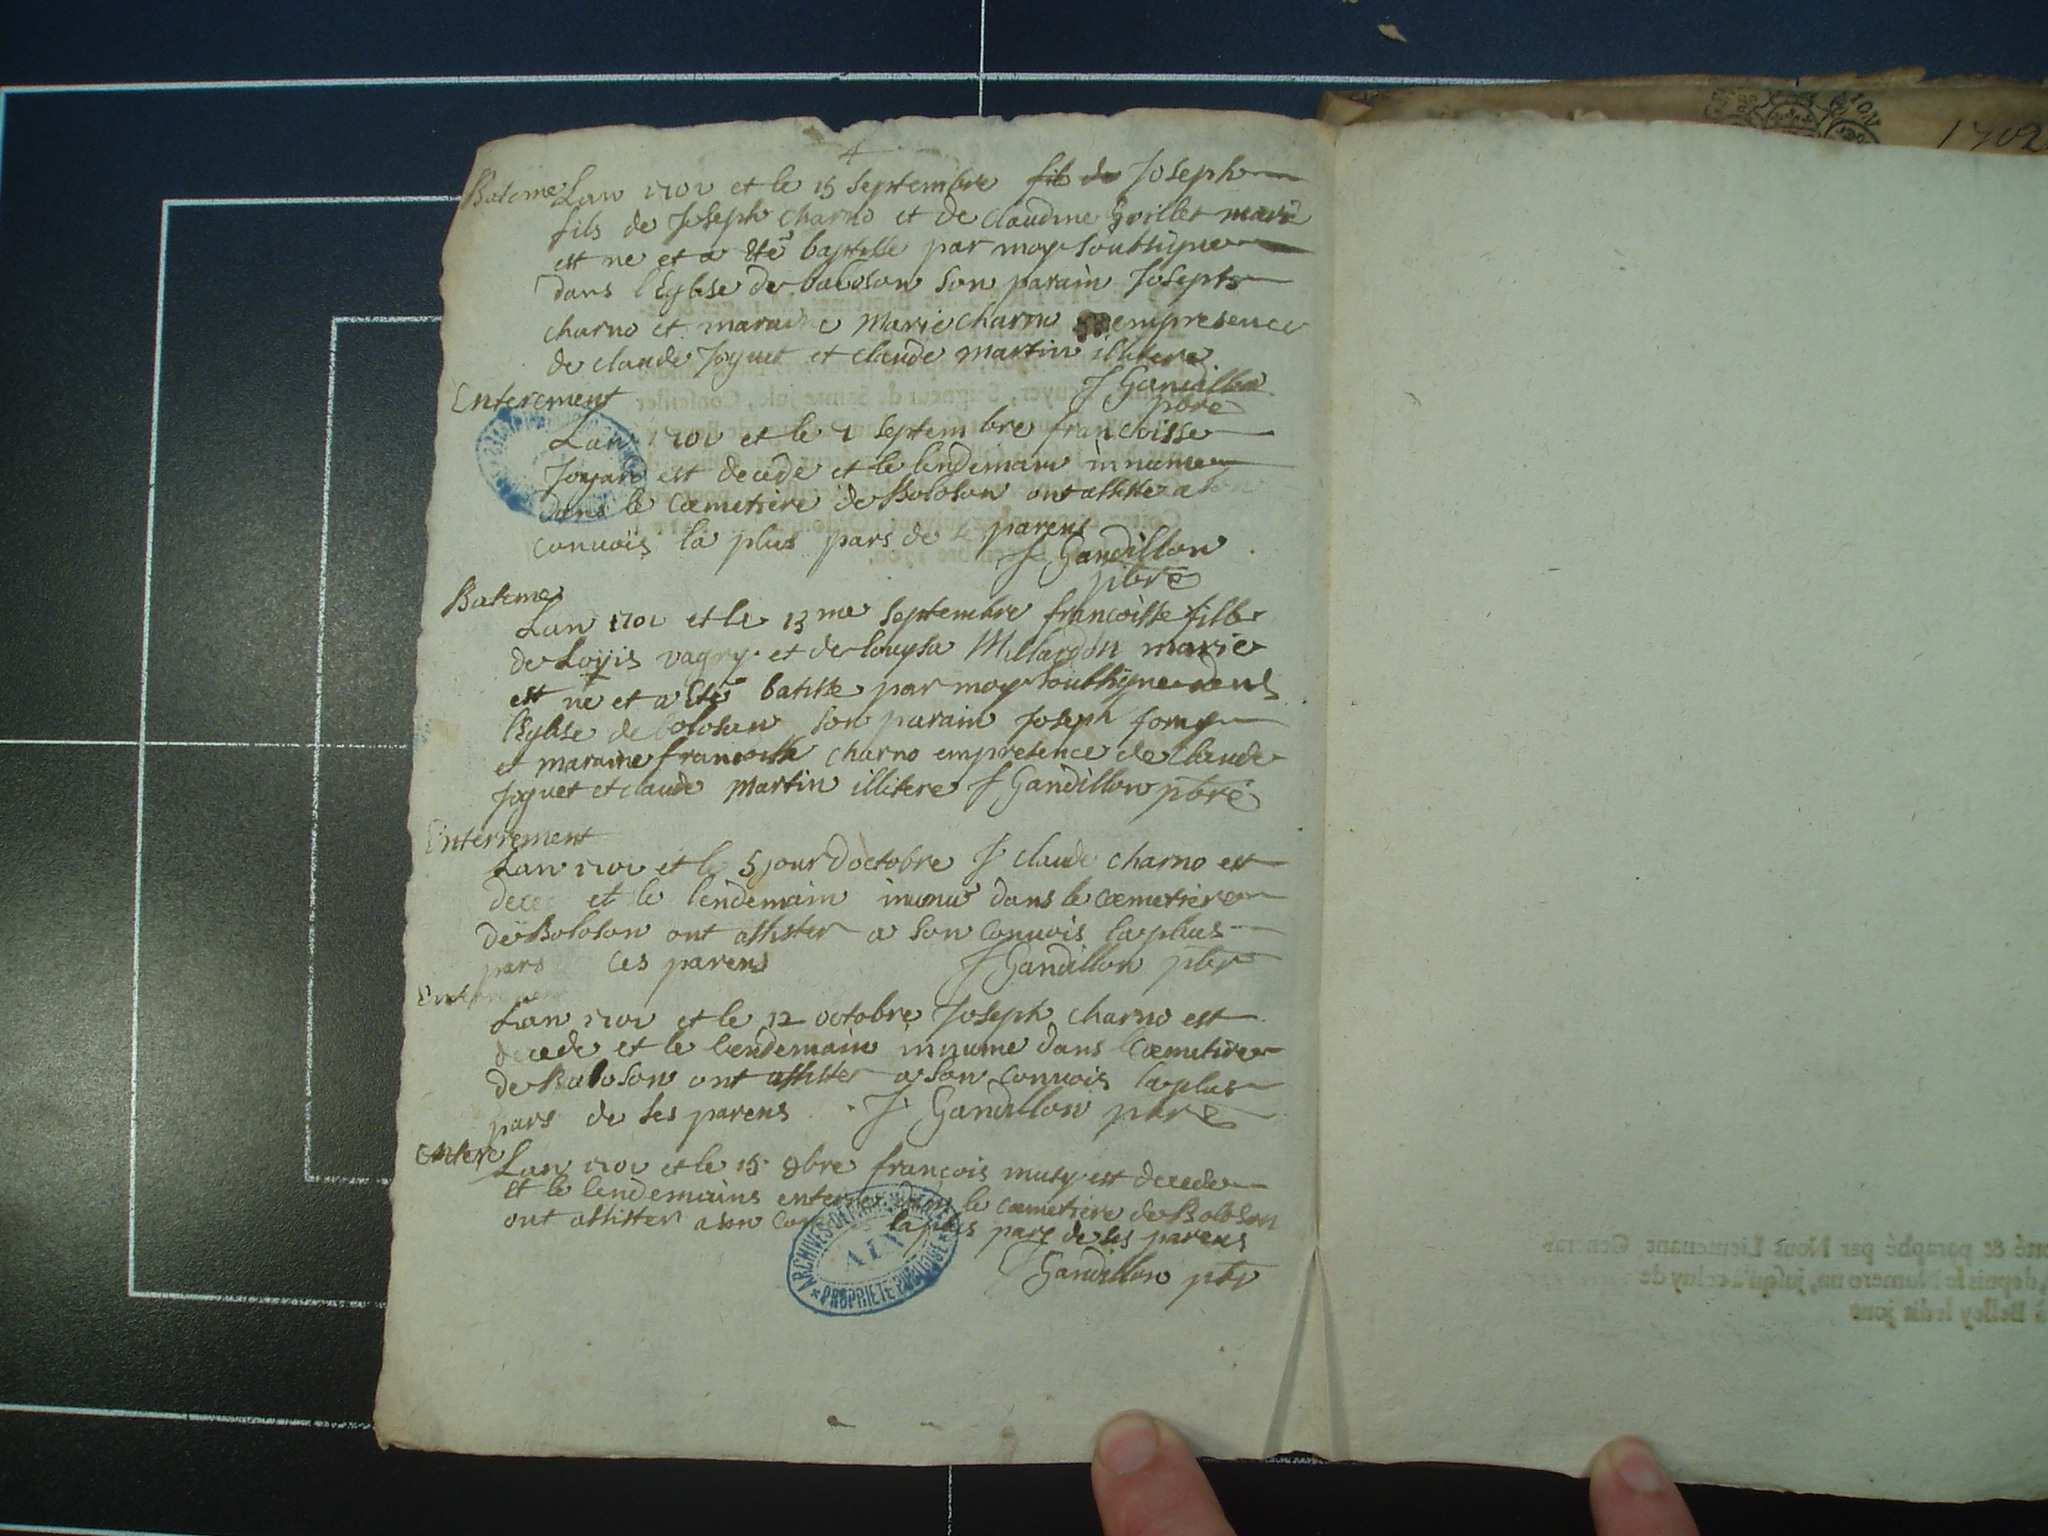 4
Bateme Lan 1701 et le 15 septembre fils de Joseph
fils de Joseph charno et de claudine Grillet marie
est ne et a été baptisse par moy soubsigne
dans l'Eglise de boloson son parain Joseph
charno et maraine Marie charno empresence
de claude Joguet et claude martin illitere
J Gandillon
pbre
Enterement
Lan 1701 et le 1 septembre francoisse
Joyard est decede et le lendemain innume
dans le cœmetiere de Boloson ont assiste a son
convois la plus pars de parens
J Gandillon
pbre
Bateme
Lan 1701 et le 13me septembre francoisse fille
de Loyis vagry et de louysa Millardon marie
est ne et a été batisse par moy soubsigne dens
l'Eglise de boloson son parain Joseph
et maraine francoisse charno empresence de claude
Joguet et claude Martin illitere J Gandillon pbre
Enterrement
Lan 1701 et le 5 jour doctobre J claude charno est
dece et le lendemain inumé dans le cœmetiere
de Boloson ont assister a son convois la plus
pars ces parens J Gandillon pbre
Lan 1701 et le 12 octobre Joseph charno est
decede et le lendemain innume dans cœmetiere
de Boloson ont assister a son convois la plus
pars de ses parens J Gandillon pbre
Entere Lan 1701 et le 15 8bre francois musy est decede
et le lendemains enterre dans le cœmetiere de Boloson
ont assister a son convois la plus pars de ses parens
J Gandillon pbr
ARCHIVES DEPARTEMENTALES
AIN
* PROPRIETE PUBLIQUE *
1702
& paraphé par Nous Lieutenant General
depuis le Numero un, jusqu'a celuy de
à Belley ledit jour